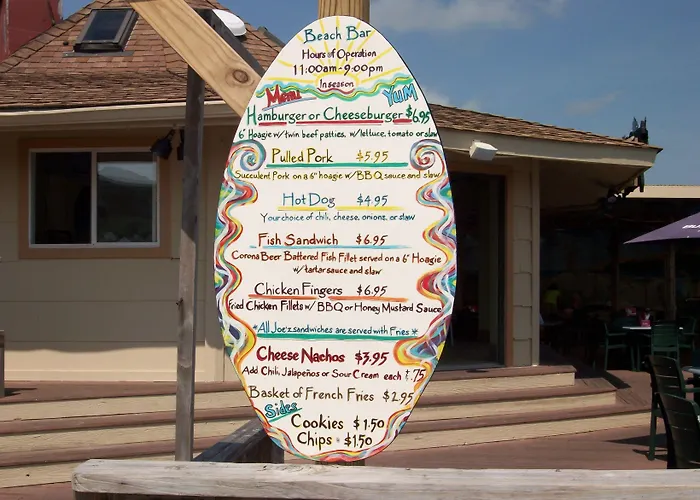 Beach Bar
Hours of Operation
11:00am - 9:00pm
In season
Menu
YUM
Hamburger or Cheeseburger $6.95
6" Hoagie w/ twin beef patties, w/ lettuce, tomato or slaw
Pulled Pork $5.95
Succulent Pork on a 6" hoagie w/ BBQ sauce and slaw
Hot Dog $4.95
Your choice of chili, cheese, onions, or slaw
Fish Sandwich $6.95
Corona Beer Battered Fish Fillet served on a 6" Hoagie
w/ tartar sauce and slaw
Chicken Fingers $6.95
Fried Chicken Fillets w/ BBQ or Honey Mustard Sauce
*All Joe'z sandwiches are served with Fries*
Cheese Nachos $3.95
Add Chili, Jalapeños or Sour Cream each $.75
Basket of French Fries $2.95
Sides
Cookies $1.50
Chips - $1.50